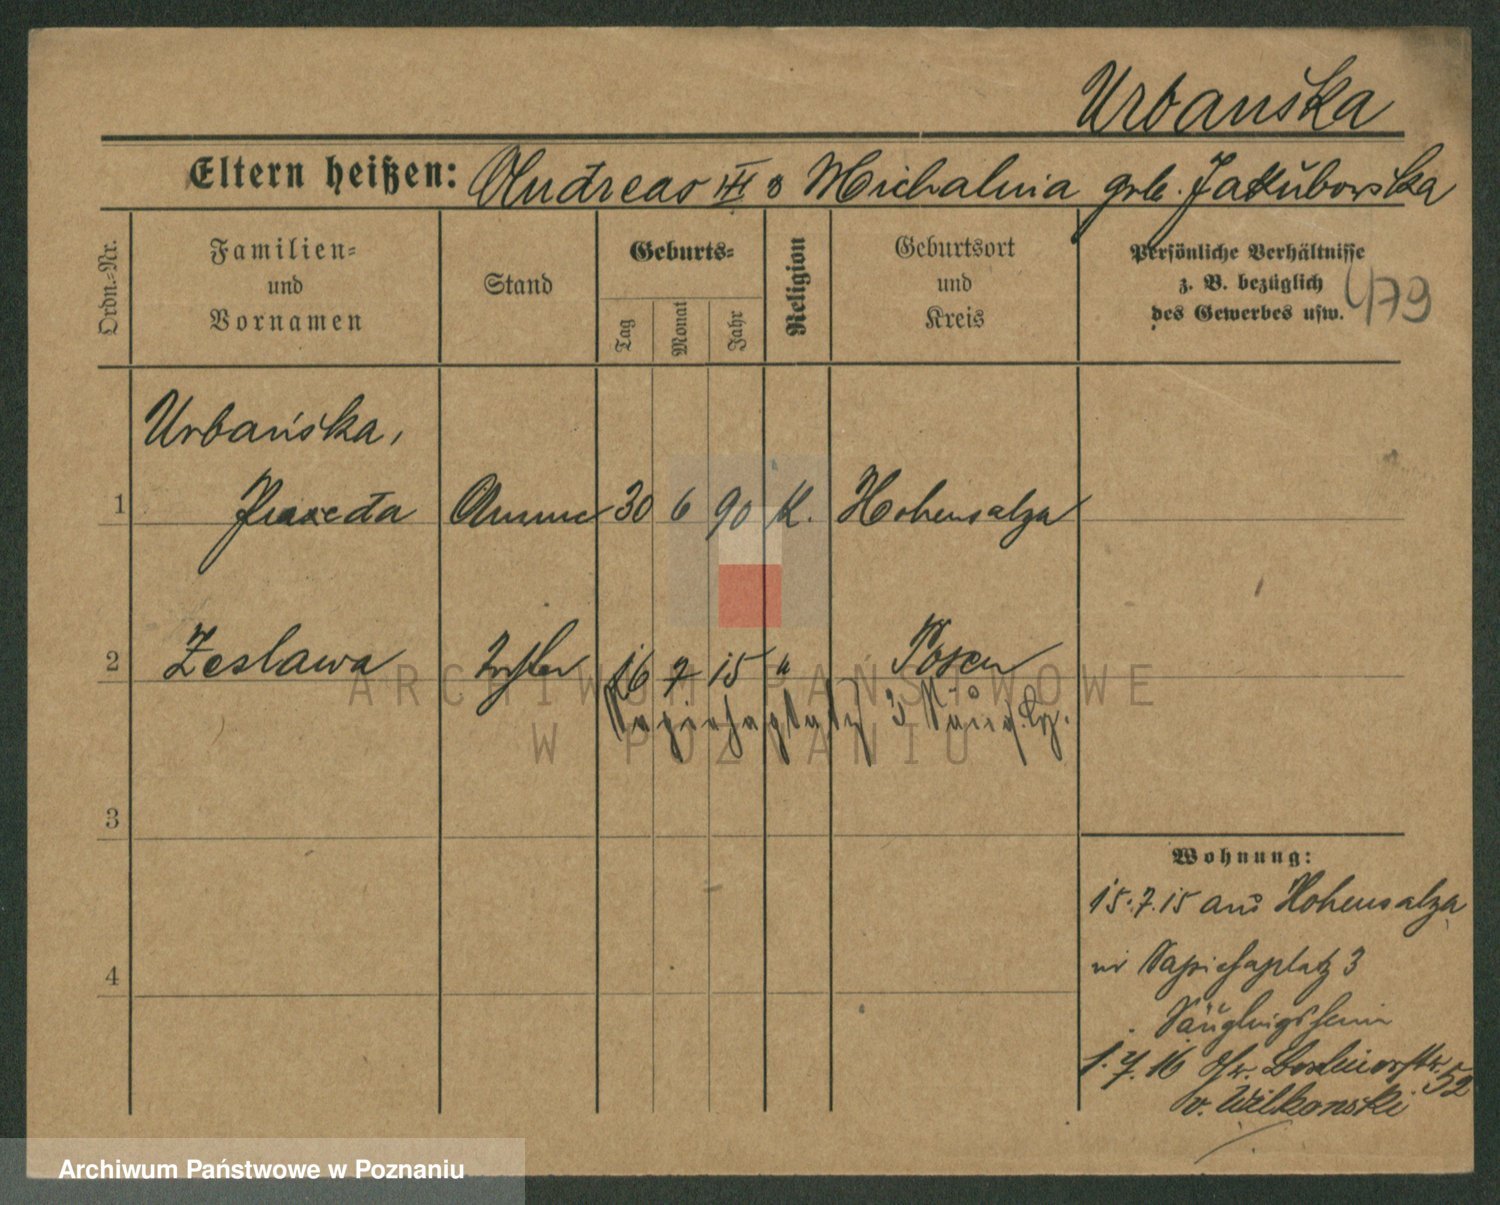 Urbanska
Eltern heißen: Andreas III & Michalina geb. Jakubowska
Ordn.-Nr.
Familien-
und
Vornamen
Stand
Geburts-
Tag
Monat
Jahr
Religion
Geburtsort
und
Kreis
Persönliche Verhältnisse
z. B. bezüglich
des Gewerbes usw.
479
Urbańska,
1 Praxeda Amme 30 6 90 K. Hohensalza
2 Zeslawa Tochter 16 7 15 " Posen
Sapiehaplatz 3
3
4
Wohnung:
15.7.15 aus Hohensalza
Sapiehaplatz 3
Säuglingsheim
1.7.16 52
v. Wilkonski
ARCHIWUM PAŃSTWOWE
W POZNANIU
Archiwum Państwowe w Poznaniu